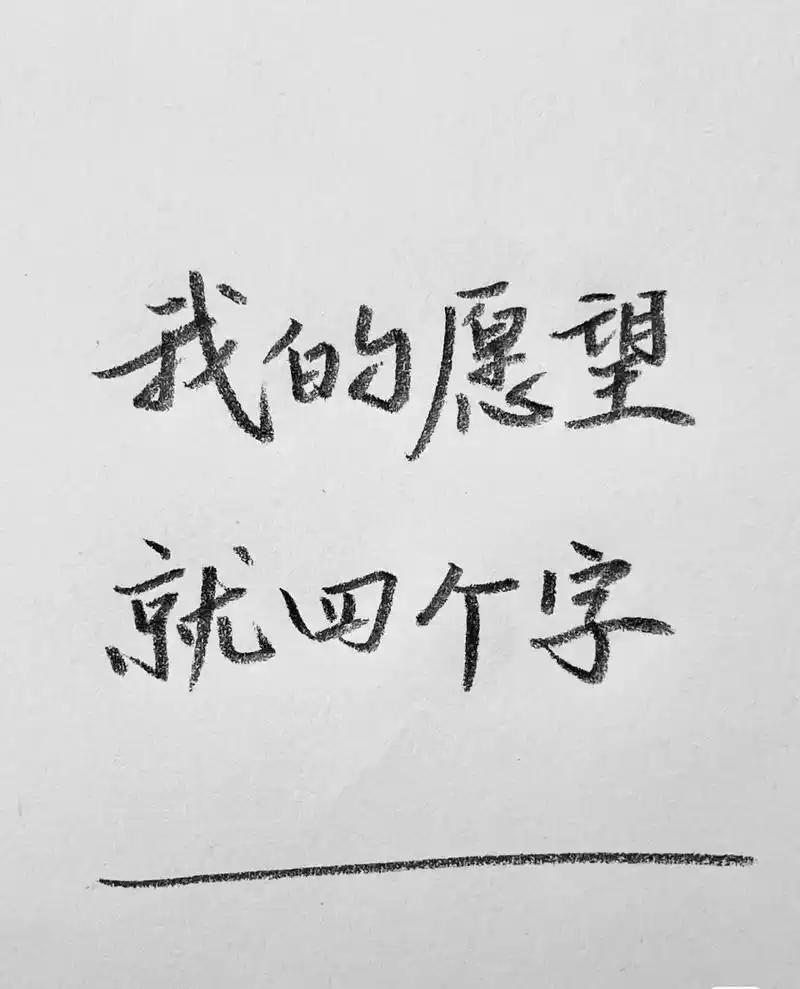 我的愿望
就四个字